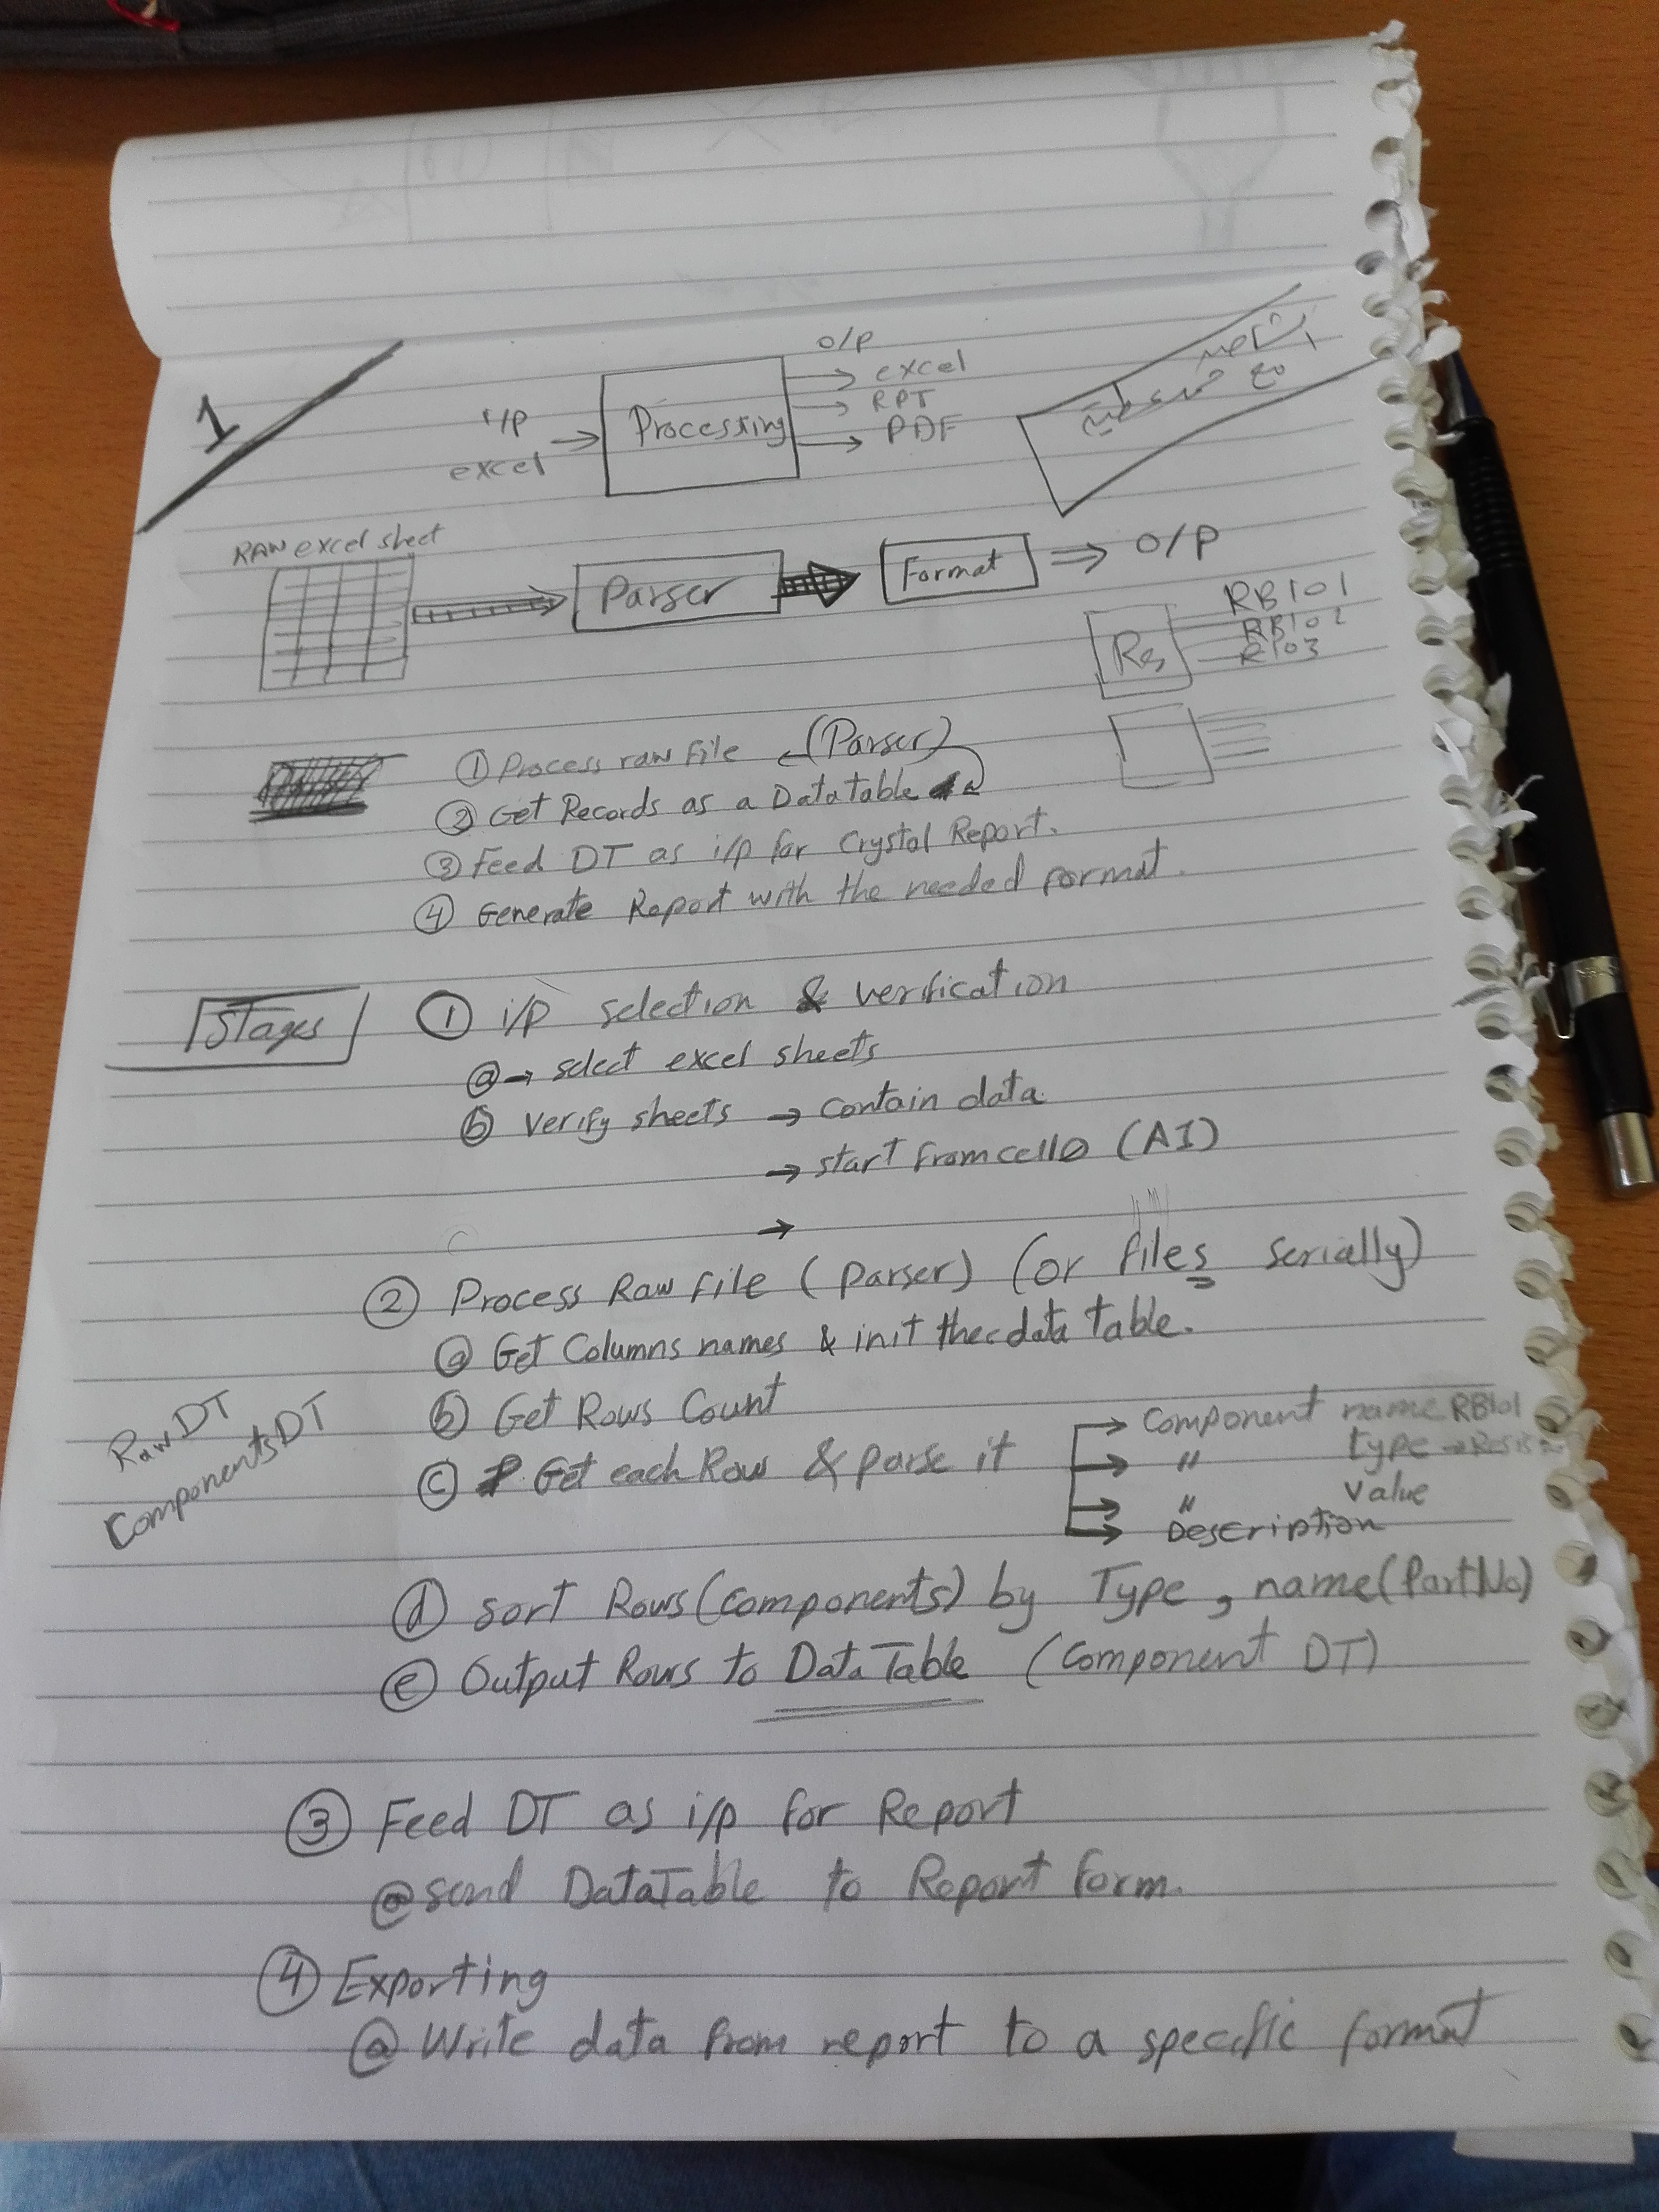 1
i/p
excel
Processing
o/p
excel
RPT
PDF
RAW excel sheet
Parser
Format
O/P
Res
RB101
RB102
R103
① Process raw file (Parser)
② Get Records as a Datatable
③ Feed DT as i/p for Crystal Report.
④ Generate Report with the needed format.
Stages
① i/p selection & verification
ⓐ → select excel sheets
ⓑ Verify sheets → contain data
→ start from cell (A1)
→
② Process Raw file (parser) (or files serially)
ⓐ Get Columns names & init the data table.
ⓑ Get Rows Count
RawDT
ComponentsDT
ⓒ Get each Row & parse it
Component name RB101
" type →
" Value
" Description
ⓓ sort Rows (components) by Type, name (PartNo)
ⓔ Output Rows to DataTable (Component DT)
③ Feed DT as i/p for Report
ⓐ send DataTable to Report form.
④ Exporting
ⓐ Write data from report to a specific format